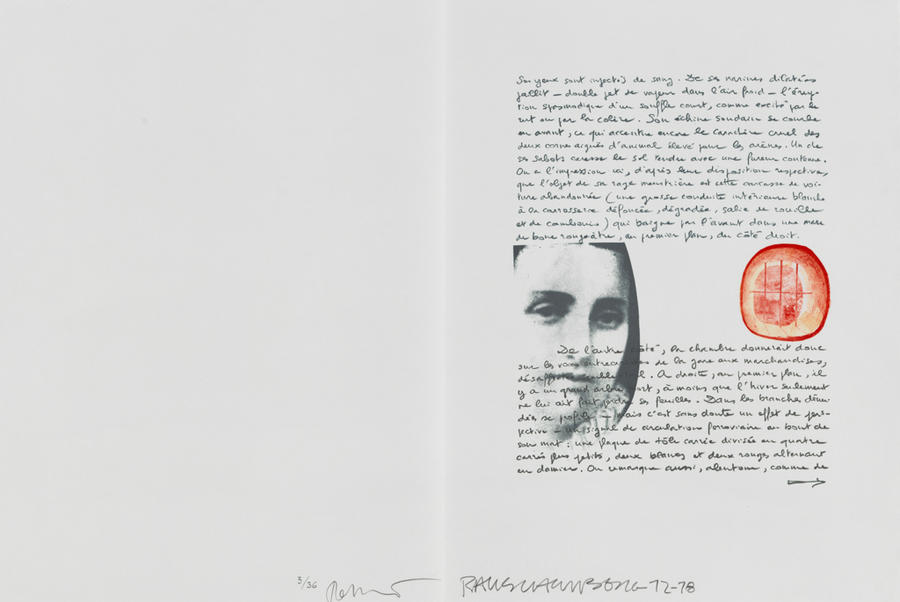 Ses yeux sont injectés de sang. De ses narines dilatées
jaillit — double jet de vapeur dans l'air froid — l'érup-
tion spasmodique d'un souffle court, comme excité par le
rut ou par la colère. Son échine soudain se courbe
en avant, ce qui accentue encore le caractère cruel des
deux cornes aiguës d'animal élevé pour les arènes. Un de
ses sabots caresse le sol tendre avec une fureur contenue.
On a l'impression ici, d'après leur disposition respective,
que l'objet de sa rage meurtrière est cette carcasse de voi-
ture abandonnée (une grosse conduite intérieure blanche
à la carrosserie défoncée, dégradée, salie de rouille
et de cambouis) qui baigne par l'avant dans une mare
de boue rougeâtre, au premier plan, du côté droit.
De l'autre côté, la chambre donnerait donc
sur les voies entrecroisées de la gare aux marchandises,
désaffectée semble-t-il. A droite, au premier plan, il
y a un grand arbre mort, à moins que l'hiver seulement
ne lui ait fait perdre ses feuilles. Dans les branches dénu-
dées se profile — mais c'est sans doute un effet de pers-
pective — un signal de circulation ferroviaire au bout de
son mat : une plaque de tôle carrée divisée en quatre
carrés plus petits, deux blancs et deux rouges alternant
en damier. On remarque aussi, alentour, comme de
3/36 RAUSCHENBERG 72-78